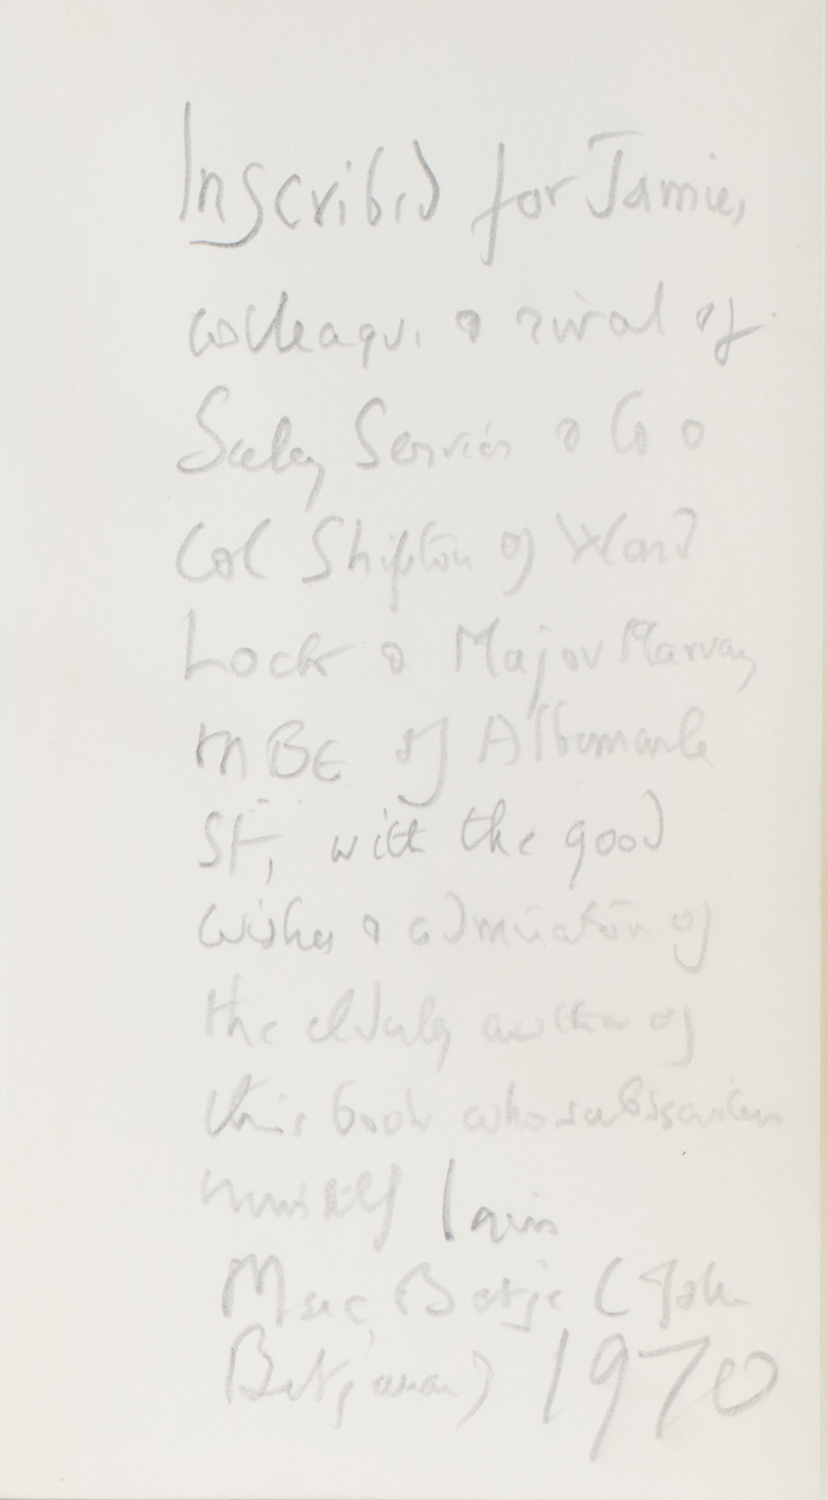 Inscribed for Jamie,
colleague & rival of
Seeley Service & Co &
Col Shipton of Ward
Lock & Major Murray
MBE of Albemarle
St, with the good
wishes & admiration of
the elderly author of
this book who subscribes
himself Iain
Betje (John
Betjeman) 1970